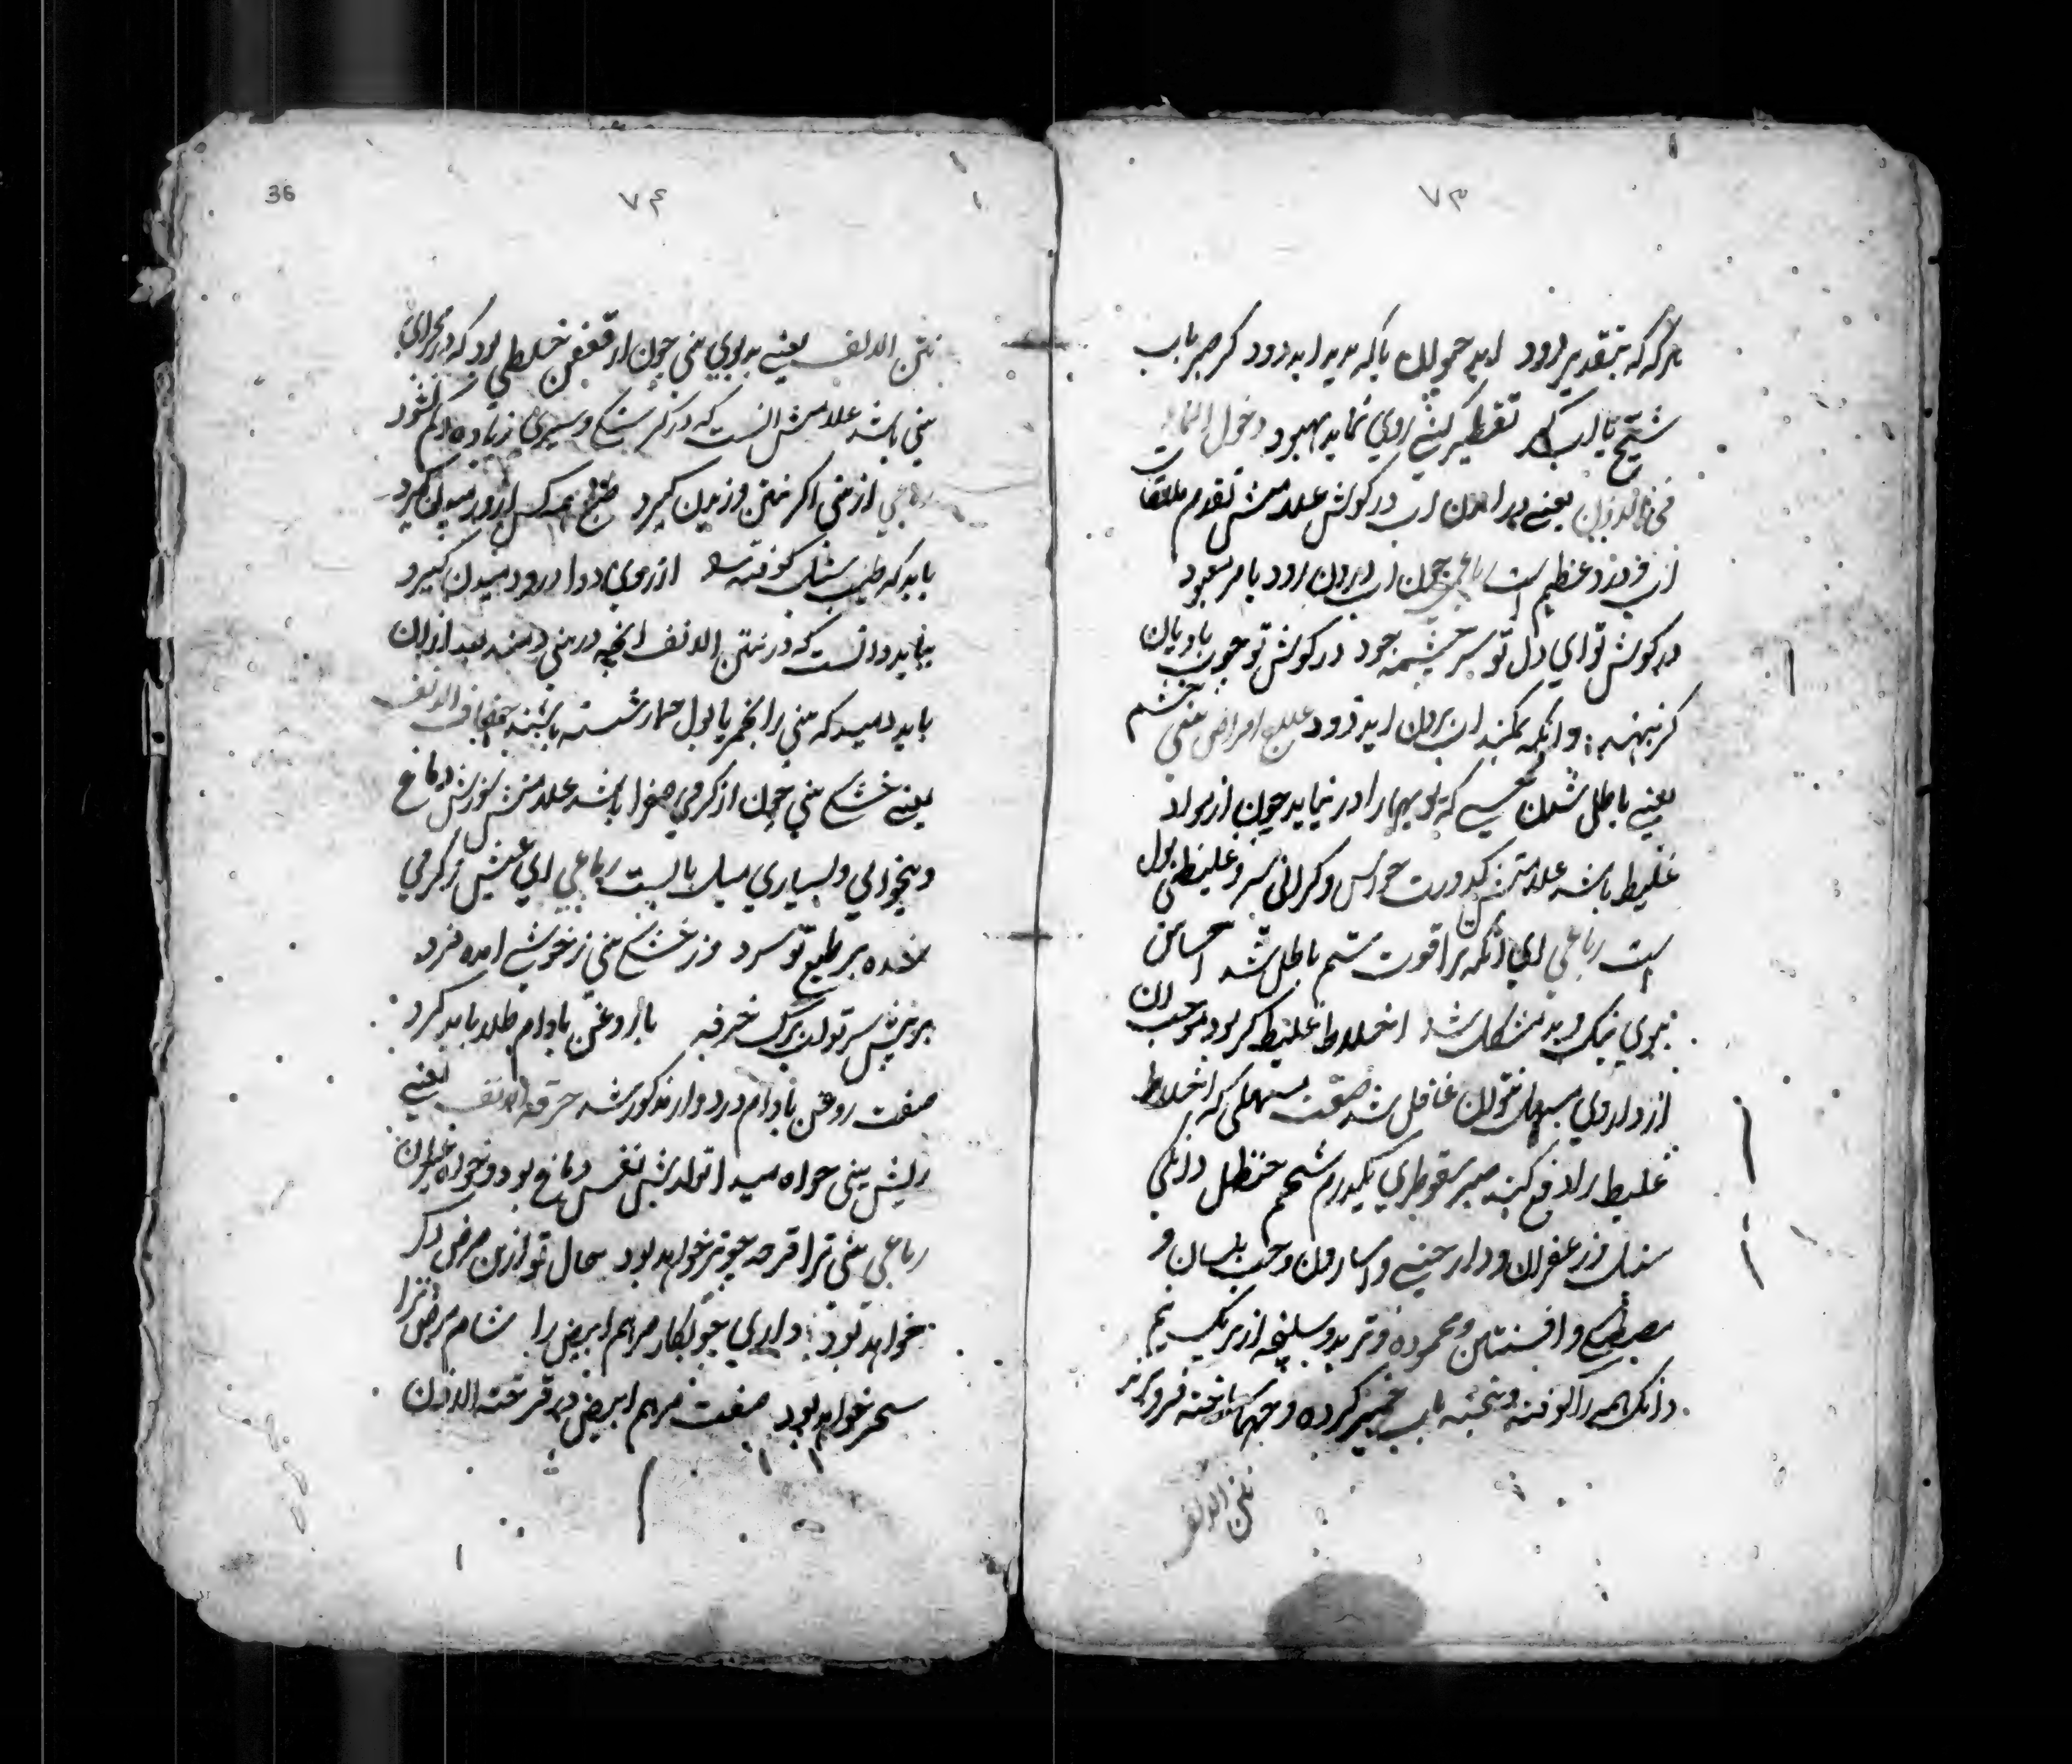 ۷۳
هرکه که بتقدیر برود آید چو لاله یا که بدید آید زود کرصبر باب
شیح یا اب کدر تقطیر کنی روی نماید بهبود دخول الماء
فی الاذن یعنی در آمدن آب در کوش علامتش تقدم ملاقات
آب و درد عظیم است رباعی چون آب برون رود بامر معبود
در کوش تو ای دل تو سر چشمه جود در کوش تو چوب بادیان
کر بنهند وانکه بمکند آب برون آید زود علاج امراض بینی خشم
یعنی باطل شدن حسی که بویها را در نیابد چون از مواد
غلیظ باشد علامتش کدورت حواس و کرانی سر و غلیظی بول
است رباعی ای آنکه ترا قوت شم باطل شد احساس
ببوی نیک و بد مشکل شد اخلاط غلیظ کر بود موجب آن
از داروی مسهل نتوان غافل شد صفت مسهلی که اخلاط
غلیظ را دفع کند صبر سقوطری یکدرم شحم حنظل دانکی
سنبل و زعفران و دارچینی و اسارون و حب بلسان و
مصطکی و افسنتین و محموده و تربد و سلیخه از هر یک نیم
دانک همه را کوفته و بیخته باب خمیر کرده و حبها ساخته فرو برند
نتن الانف
36
۷۴
نتن الانف یعنی بدبوی بینی چون از تعفن خلطی بود که در مجرای
بینی باشد علامتش آنست که در کرسنکی و سیری زیاده و کم نشود
رباعی از بینی اکر نتن وزیدن کیرد طبع همه کس ازو رمیدن کیرد
باید که طبیب سنبل کوفته از روی دوا درو دمیدن کیرد
بباید دانست که در نتن الانف آنچه در بینی دمند بعد از آن
باید دمید که بینی را بخمر یا بول حمار شسته باشند جفاف الانف
یعنی خشکی بینی چون از کرمی صفرا باشد علامتش سوزش دماغ
و بیخوابی و بسیاری میل بالست رباعی ای عیش ز کرمی
شده بر طبع تو سرد وز خشکی بینی ز خوشی آمده فرد
بر پیش سر تو آب برک خرفه با روغن بادام طلا باید کرد
صفت روغن بادام در دوار مذکور شد حرقة الانف یعنی
ریش بینی خواه مبدا تولدش نفس دماغ بود و خواه غیر آن
رباعی بینی ترا قرحه چو تر خواهد بود حال تو ازین مرض دکر
خواهد بود داری چو بکار مرهم ابیض را شام مرض ترا
سحر خواهد بود صفت مرهم ابیض در قرحة الاذن